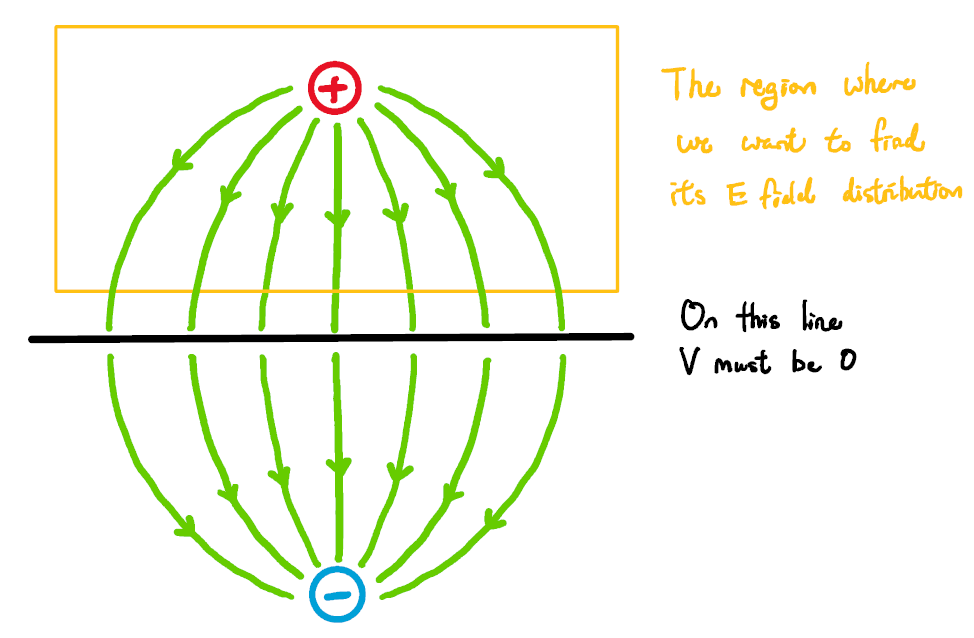 +
The region where
we want to find
its E field distribution
On this line
V must be 0
−